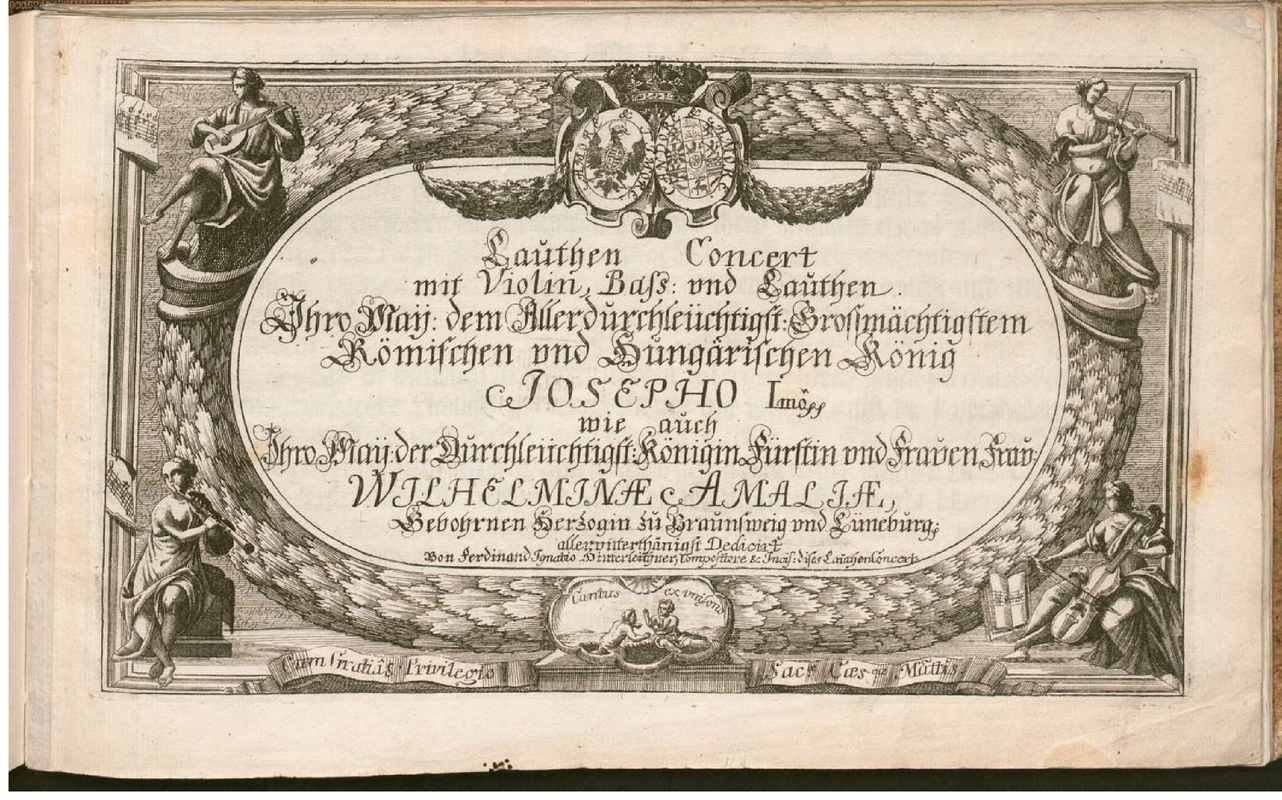 Lauthen Concert
mit Violin, Bass: vnd Lauthen.
Ihro May: dem Allerdürchleüchtigst: Grossmächtigstem
Römischen vnd Hungärischen König
IOSEPHO Imo
wie auch
Ihro May: der Dürchleüchtigst: Königin Fürstin vnd Fraven Frav:
WILHELMINÆ AMALIÆ,
Gebohrnen Herzogin zü Braunsweig vnd Lüneburg:
allervnterthänigst Dedicirt
Von Ferdinand Ignatio Hinterleithner, Compositore & Incis: dises Lauthen Concerts
Cantus ex vnisono
Cum Gratia & Privilegio Sac: Cæs: Mattis